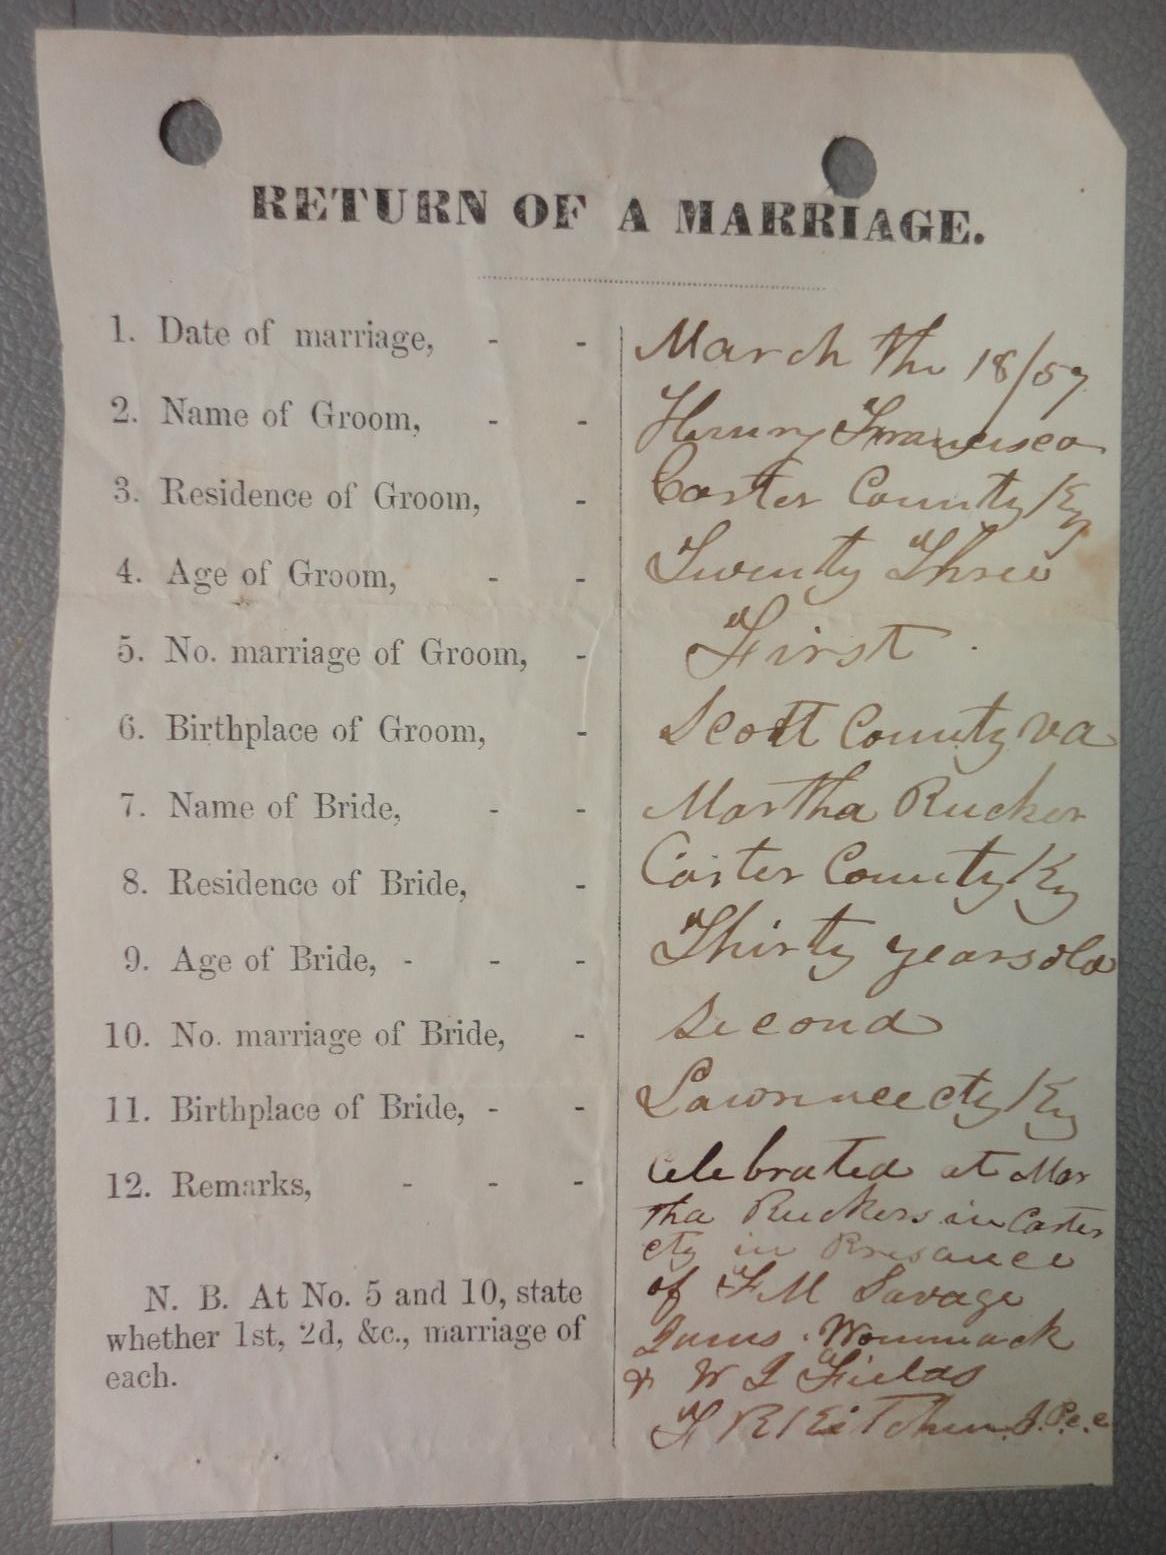 RETURN OF A MARRIAGE.
1. Date of marriage, - - March the 18/57
2. Name of Groom, - - Henry Francisco
3. Residence of Groom, - Carter County Ky
4. Age of Groom, - - Twenty Three
5. No. marriage of Groom, - First
6. Birthplace of Groom, - Scott County Va
7. Name of Bride, - - Martha Rucker
8. Residence of Bride, - Carter County Ky
9. Age of Bride, - - - Thirty years old
10. No. marriage of Bride, - Second
11. Birthplace of Bride, - - Lawrence cty Ky
12. Remarks, - - - Celebrated at Mar
tha Ruckers in Carter
cty in Presance
of F M Savage
James Wommack
& W J Fields
F R Kitchen J.P.C.C
N. B. At No. 5 and 10, state
whether 1st, 2d, &c., marriage of
each.